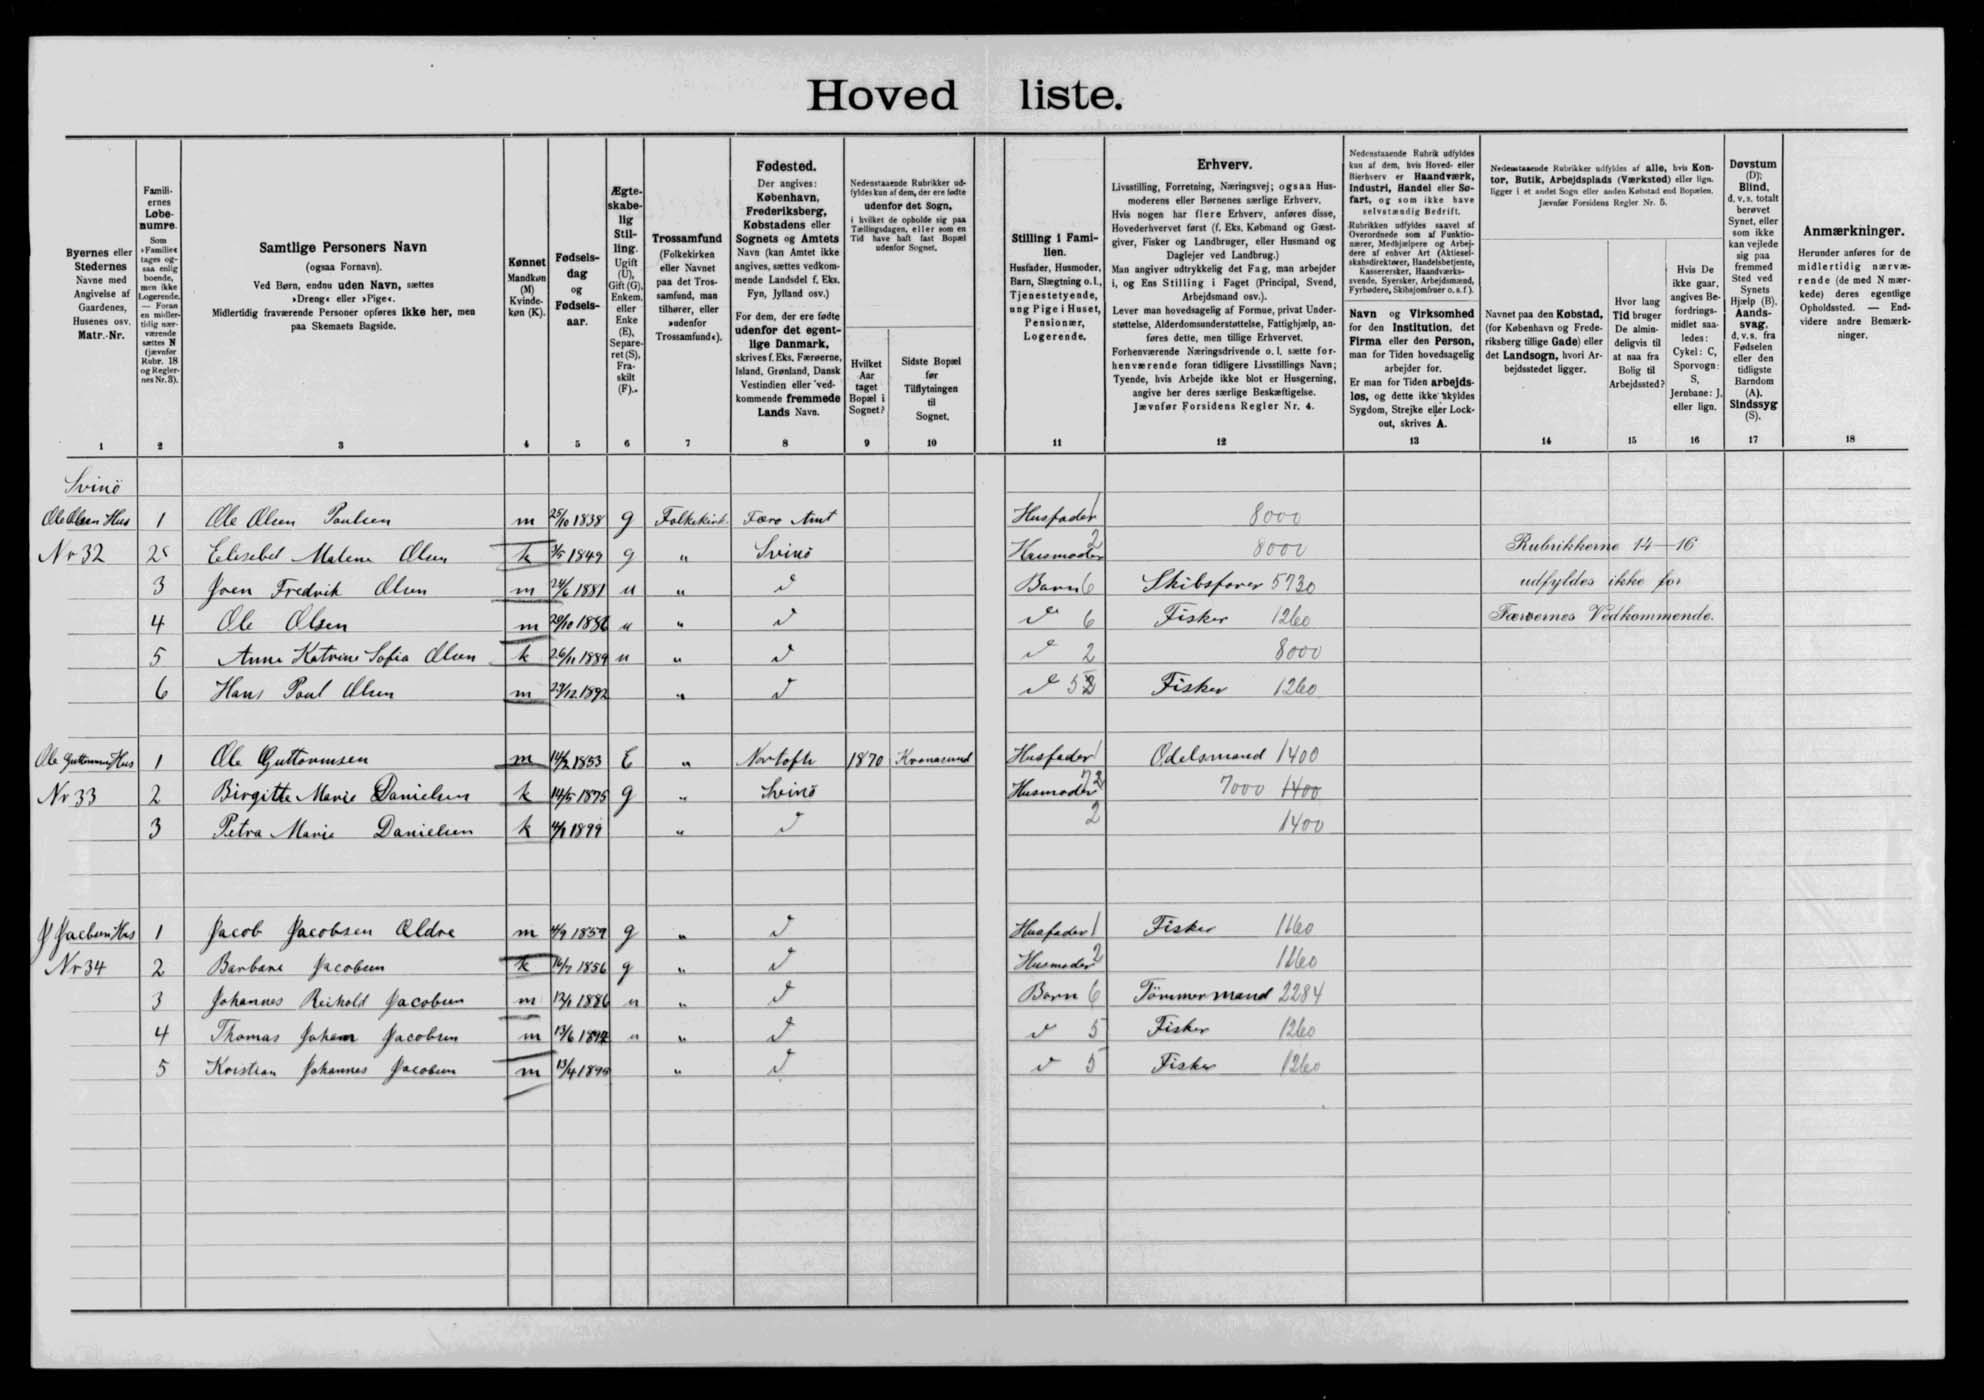 Hoved liste.
Byernes eller
Stedernes
Navne med
Angivelse af
Gaardenes,
Husenes osv.
Matr.-Nr.
1
Famili-
ernes
Løbe-
numre.
Som
»Familie«
tages og-
saa enlig
boende,
men ikke
Logerende.
— Foran
en midler-
tidig nær-
værende
sættes N
(jævnfør
Rubr. 18
og Regler-
nes Nr. 3).
2
Samtlige Personers Navn
(ogsaa Fornavn).
Ved Børn, endnu uden Navn, sættes
»Dreng« eller »Pige«.
Midlertidig fraværende Personer opføres ikke her, men
paa Skemaets Bagside.
3
Kønnet
Mandkøn
(M)
Kvinde-
køn (K).
4
Fødsels-
dag
og
Fødsels-
aar.
5
Ægte-
skabe-
lig
Stil-
ling.
Ugift
(U),
Gift (G),
Enkem.
eller
Enke
(E),
Separe-
ret (S),
Fra-
skilt
(F).
6
Trossamfund
(Folkekirken
eller Navnet
paa det Tros-
samfund, man
tilhører, eller
»udenfor
Trossamfund«).
7
Fødested.
Der angives:
København,
Frederiksberg,
Købstadens eller
Sognets og Amtets
Navn (kan Amtet ikke
angives, sættes vedkom-
mende Landsdel f. Eks.
Fyn, Jylland osv.)
For dem, der ere fødte
udenfor det egent-
lige Danmark,
skrives f. Eks. Færøerne,
Island, Grønland, Dansk
Vestindien eller ved-
kommende fremmede
Lands Navn.
8
Nedenstaaende Rubrikker ud-
fyldes kun af dem, der ere fødte
udenfor det Sogn,
i hvilket de opholde sig paa
Tællingsdagen, eller som en
Tid have haft fast Bopæl
udenfor Sognet.
Hvilket
Aar
taget
Bopæl i
Sognet?
9
Sidste Bopæl
før
Tilflytningen
til
Sognet.
10
Stilling i Fami-
lien.
Husfader, Husmoder,
Barn, Slægtning o. l.,
Tjenestetyende,
ung Pige i Huset,
Pensionær,
Logerende.
11
Erhverv.
Livsstilling, Forretning, Næringsvej; ogsaa Hus-
moderens eller Børnenes særlige Erhverv.
Hvis nogen har flere Erhverv, anføres disse,
Hovederhvervet først (f. Eks. Købmand og Gæst-
giver, Fisker og Landbruger, eller Husmand og
Daglejer ved Landbrug.)
Man angiver udtrykkelig det Fag, man arbejder
i, og Ens Stilling i Faget (Principal, Svend,
Arbejdsmand osv.).
Lever man hovedsagelig af Formue, privat Under-
støttelse, Alderdomsunderstøttelse, Fattighjælp, an-
føres dette, men tillige Erhvervet.
Forhenværende Næringsdrivende o. l. sætte for-
henværende foran tidligere Livsstillings Navn;
Tyende, hvis Arbejde ikke blot er Husgerning,
angive her deres særlige Beskæftigelse.
Jævnfør Forsidens Regler Nr. 4.
12
Nedenstaaende Rubrik udfyldes
kun af dem, hvis Hoved- eller
Bierhverv er Haandværk,
Industri, Handel eller Sø-
fart, og som ikke have
selvstændig Bedrift.
Rubrikken udfyldes saavel af
Overordnede som af Funktio-
nærer, Medhjælpere og Arbej-
dere af enhver Art (Aktiesel-
skabsdirektører, Handelsbetjente,
Kasserersker, Haandværks-
svende, Syersker, Arbejdsmænd,
Fyrbødere, Skibsjomfruer o. s. f.).
Navn og Virksomhed
for den Institution, det
Firma eller den Person,
man for Tiden hovedsagelig
arbejder for.
Er man for Tiden arbejds-
løs, og dette ikke skyldes
Sygdom, Strejke eller Lock-
out, skrives A.
13
Nedenstaaende Rubrikker udfyldes af alle, hvis Kon-
tor, Butik, Arbejdsplads (Værksted) eller lign.
ligger i et andet Sogn eller anden Købstad end Bopælen.
Jævnfør Forsidens Regler Nr. 5.
Navnet paa den Købstad,
(for København og Frede-
riksberg tillige Gade) eller
det Landsogn, hvori Ar-
bejdsstedet ligger.
14
Hvor lang
Tid bruger
De almin-
deligvis til
at naa fra
Bolig til
Arbejdssted?
15
Hvis De
ikke gaar,
angives Be-
fordrings-
midlet saa-
ledes:
Cykel: C,
Sporvogn:
S,
Jernbane: J,
eller lign.
16
Døvstum
(D);
Blind,
d. v. s. totalt
berøvet
Synet, eller
som ikke
kan vejlede
sig paa
fremmed
Sted ved
Synets
Hjælp (B).
Aands-
svag,
d. v. s. fra
Fødselen
eller den
tidligste
Barndom
(A).
Sindssyg
(S).
17
Anmærkninger.
Herunder anføres for de
midlertidig nærvæ-
rende (de med N mær-
kede) deres egentlige
Opholdssted. — End-
videre andre Bemærk-
ninger.
18
Svinö
Ole Olsen Hus 1 Ole Olsen Poulsen m 25/10 1838 g Folkekirk. Færo Amt Husfader 1 8000
Nr 32 2 Elesebet Malene Olsen k 3/5 1849 g " Svinö Husmoder 2 8000 Rubrikkerne 14—16
3 Joen Fredrik Olsen m 24/6 1881 u " d Barn 6 Skibsfører 5730 udfyldes ikke for
4 Ole Olsen m 20/10 1886 u " d d 6 Fisker 1260 Færøernes Vedkommende.
5 Anna Katrine Sofia Olsen k 26/11 1889 u " d d 2 8000
6 Hans Poul Olsen m 29/12 1892 " d d 5 Fisker 1260
Ole Guttormsen Hus 1 Ole Guttormsen m 14/2 1833 E " Nortofte 1870 Kvanasund Husfader 1 Odelsmand 1400
Nr 33 2 Birgitte Marie Danielsen k 14/5 1875 g " Svinö Husmoder 72 7000 1400
3 Petra Marie Danielsen k 4/1 1899 " d 2 1400
J Jacobsen Hus 1 Jacob Jacobsen Eldre m 4/9 1859 g " d Husfader 1 Fisker 1160
Nr 34 2 Barbare Jacobsen k 16/7 1856 g " d Husmoder 2 1160
3 Johannes Reihold Jacobsen m 12/1 1886 u " d Barn 6 Tömmermand 2284
4 Thomas Johan Jacobsen m 13/6 1892 u " d d 5 Fisker 1260
5 Kristian Johannes Jacobsen m 13/4 1895 " d d 5 Fisker 1260